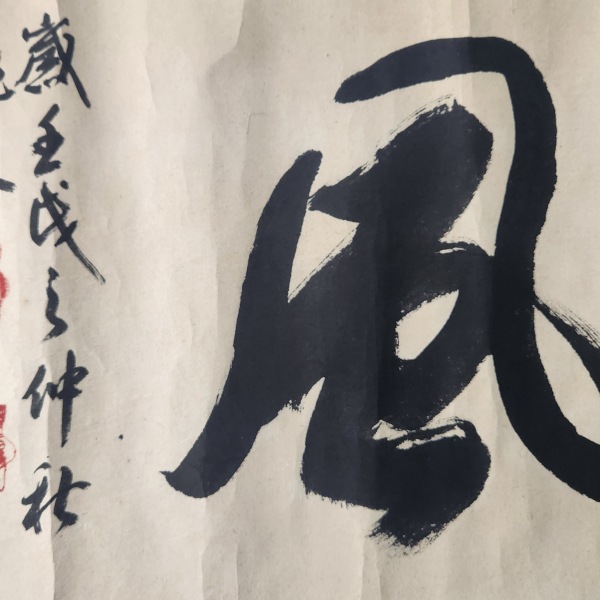 風
歲壬戌之仲秋